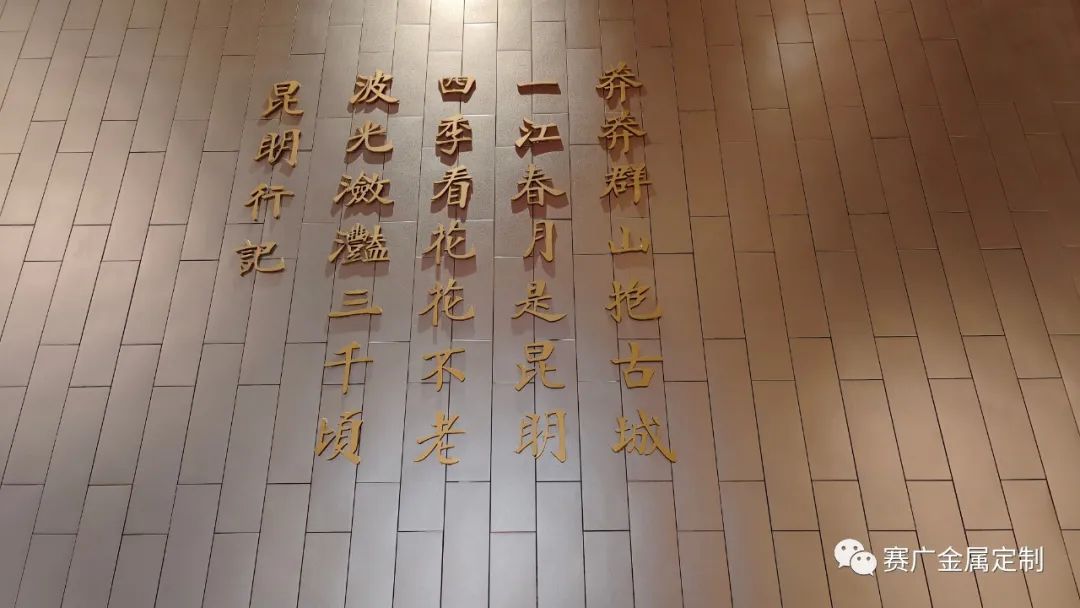 莽莽群山抱古城
一江春月是昆明
四季看花花不老
波光瀲灩三千頃
昆明行記
赛广金属定制